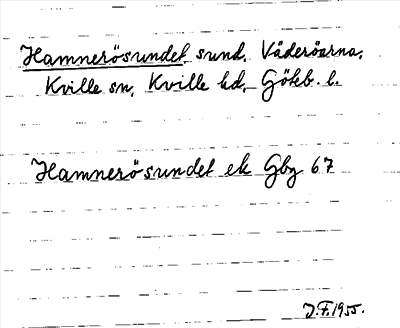 Hamnerösundet, sund, Väderöarna,
Kville sn, Kville hd, Göteb. l.
Hamnerösundet ek Gbg 67
J.F. 1955.